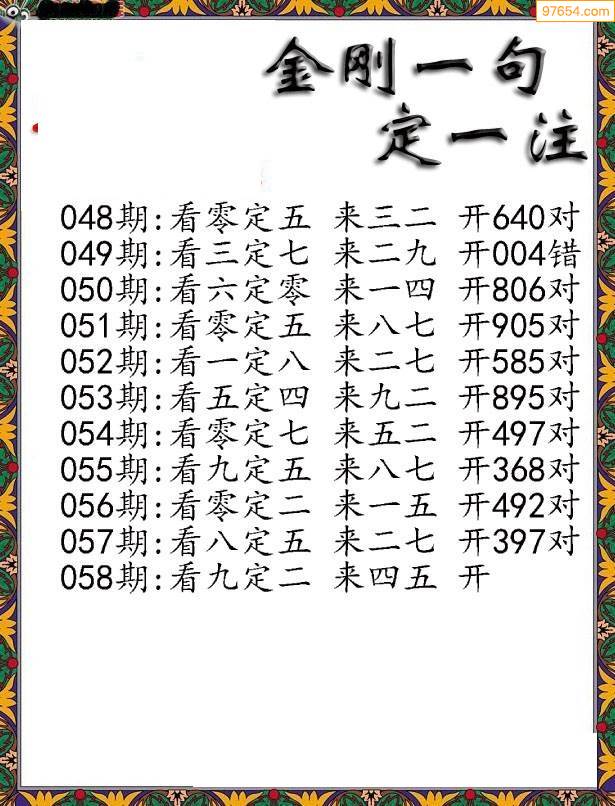 97654.com
金刚一句
定一注
048期:看零定五 来三二 开640对
049期:看三定七 来二九 开004错
050期:看六定零 来一四 开806对
051期:看零定五 来八七 开905对
052期:看一定八 来二七 开585对
053期:看五定四 来九二 开895对
054期:看零定七 来五二 开497对
055期:看九定五 来八七 开368对
056期:看零定二 来一五 开492对
057期:看八定五 来二七 开397对
058期:看九定二 来四五 开